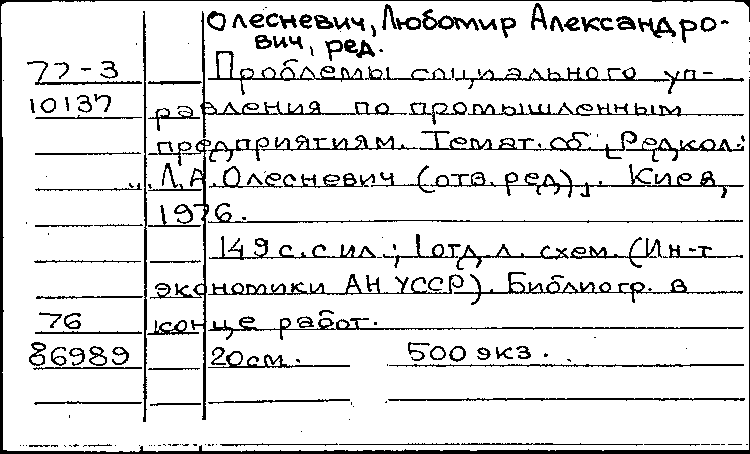 Олесневич, Любомир Александро-
вич, ред.
77-3 Проблемы социального уп-
10137 равления по промышленным
предприятиям. Темат. сб. [Редкол.:
Л.А. Олесневич (отв. ред)]. Киев,
1976.
149 с. с ил.; 1 отд. л. схем. (Ин-т
экономики АН УССР). Библиогр. в
76 конце работ.
86989 20 см. 500 экз.